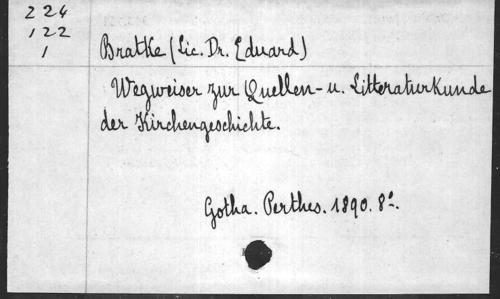 224
122
1
Bratke (Lic. Dr. Eduard)
Wegweiser zur Quellen- u. Litteraturkunde
der Kirchengeschichte.
Gotha. Perthes. 1890. 8°.